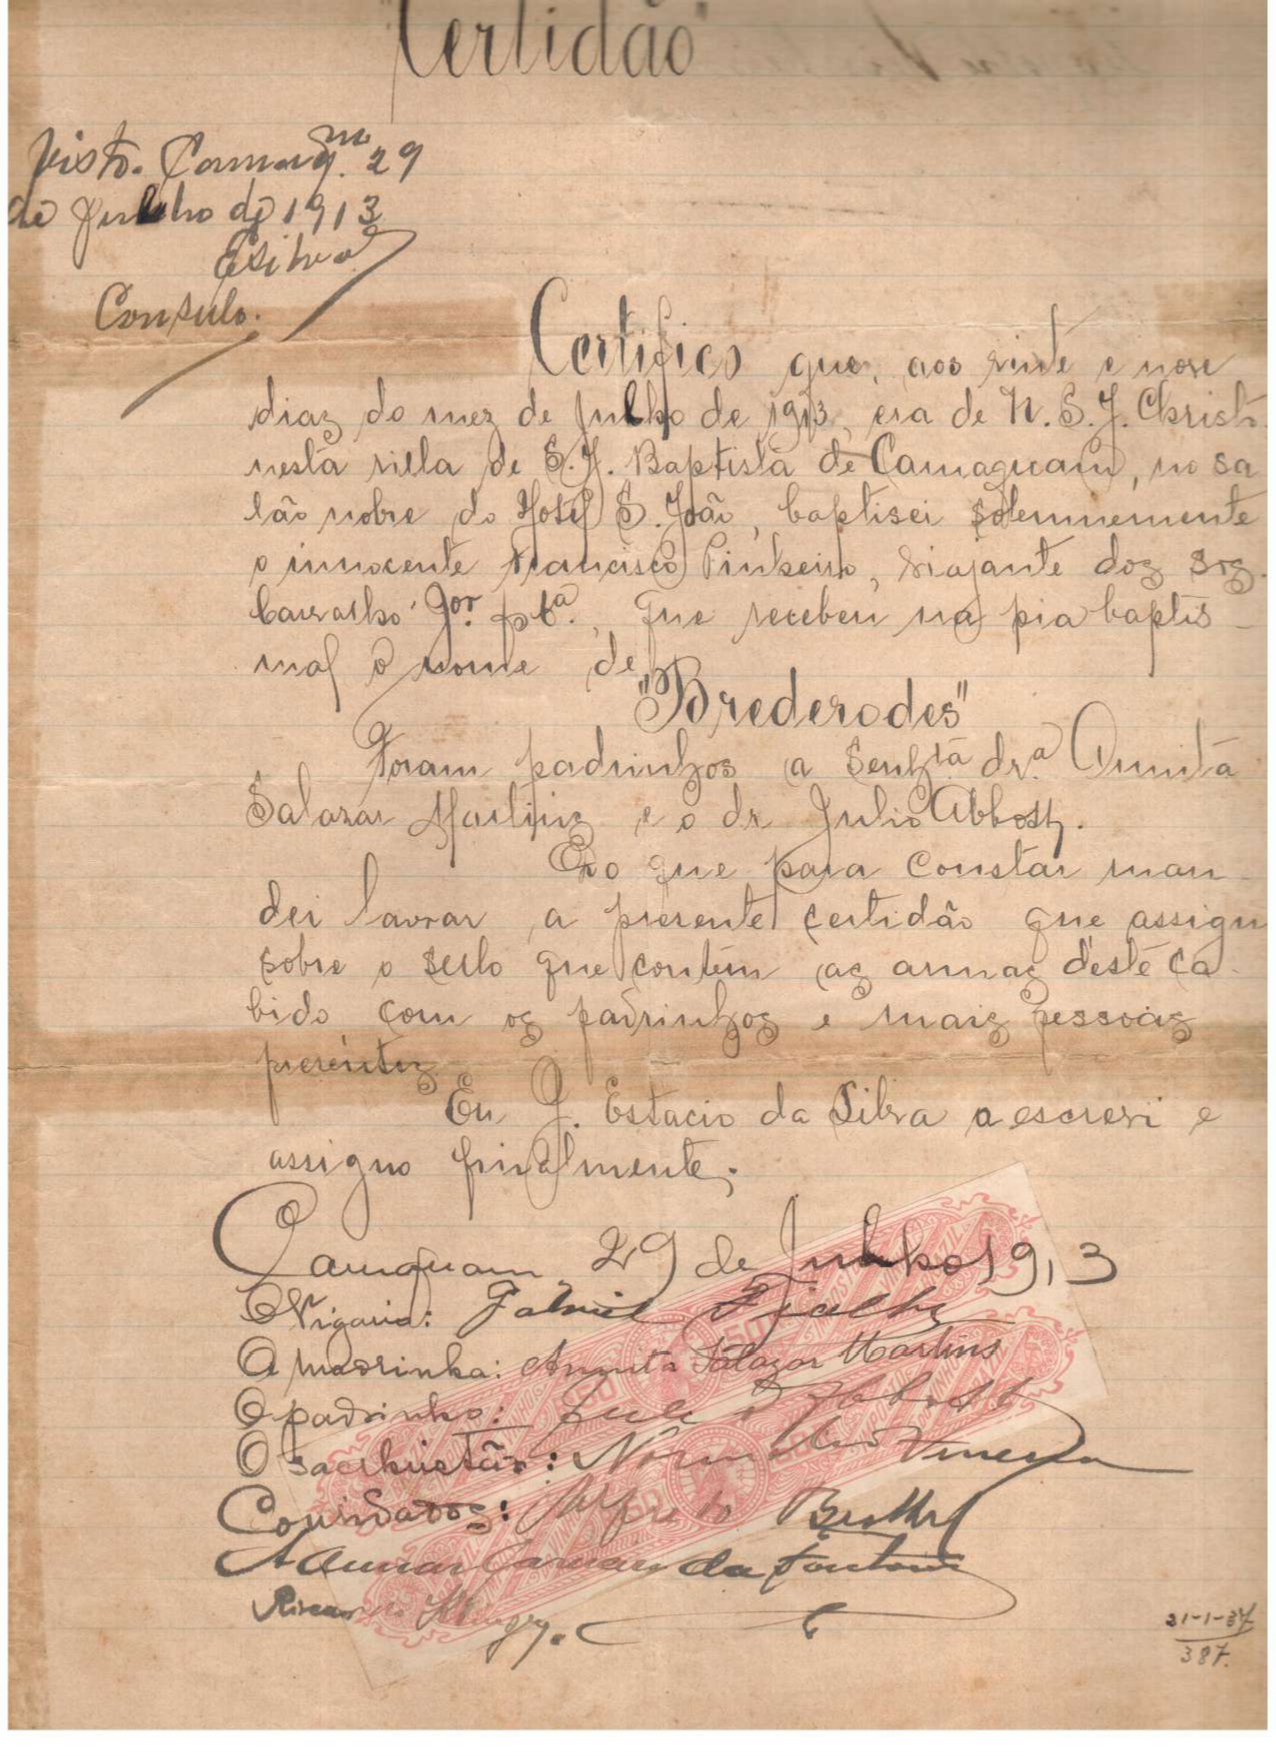 "Certidão"
Visto. Camaqm. 29
de Julho de 1913
ESilva
Consulo.
Certifico que, aos vinte e nove
diaz do mez de Julho de 1913, era de N. S. J. Christo
nesta villa de S. J. Baptista de Camaquam, no sa
lão nobre do Hotel S. João, baptisei solemnemente
o innocente Francisco Pinheiro, viajante doz srz.
Carvalho Jor. & Ca., que recebeu na pia baptis-
mal o nome de
"Brederodes"
Foram padrinhos a senhta dra. Annita
Salazar Martins e o dr Julio Abbott.
E o que para constar man-
dei lavrar a presente certidão que assigno
sobre o sello que contém as armas déste ca-
bido com os padrinhos e mais pessoas
presentes
Eu J. Estacio da Silva a escrevi e
assigno finalmente.
Camaquam 29 de Julho 1913
O Vigario: Gabriel
A madrinha: Annita Salazar Martins
O padrinho: Julio Abbott
O sachristão:
Convidados: Alfredo
da
Ricardo
21-1-37
387.